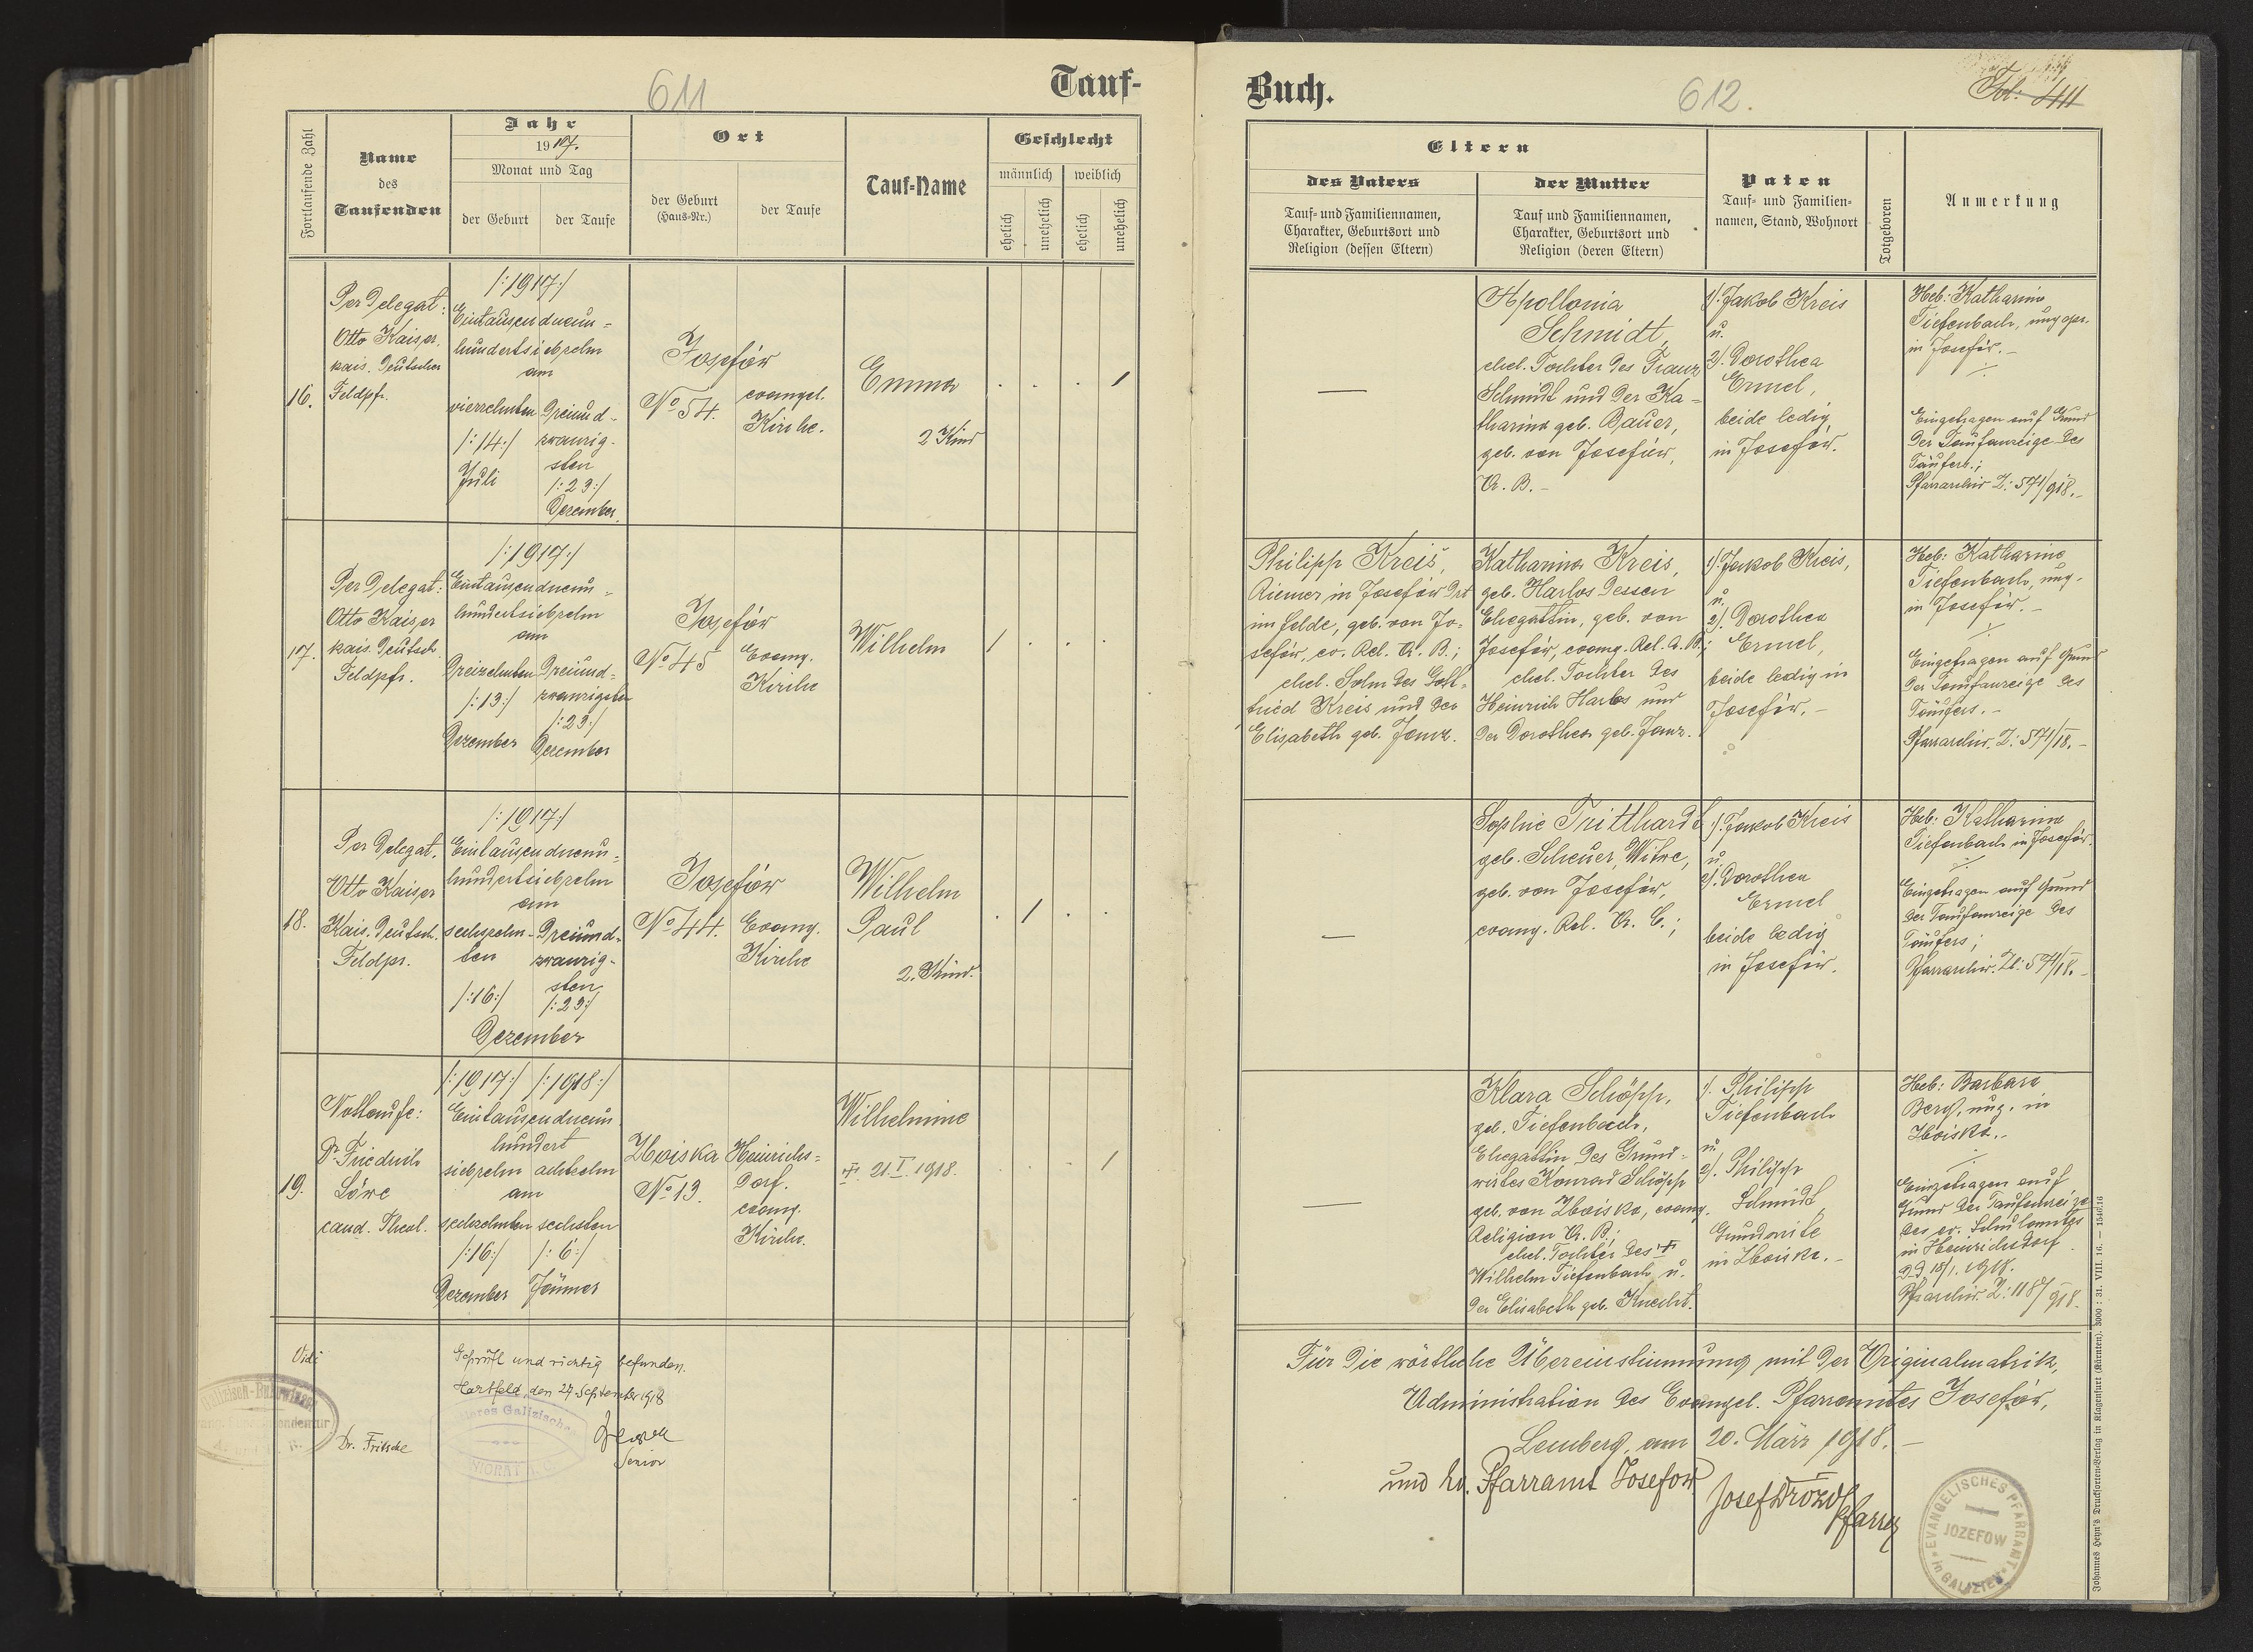 611
Tauf-
Fortlaufende Zahl
Name
des
Taufenden
Jahr
1917.
Monat und Tag
der Geburt
der Taufe
Ort
der Geburt
(Haus-Nr.)
der Taufe
Tauf-Name
Geschlecht
männlich
weiblich
ehelich
unehelich
ehelich
unehelich
16.
Per Delegat:
Otto Kaiser,
kais. Deutscher
Feldpf.
/:1917:/
Eintausendneun-
hundertsiebzehn
am
vierzehnten
/:14:/
Juli
Dreiund-
zwanzig-
sten
/:23:/
Dezember.
Josefów
No 54.
evangel.
Kirche.
Emma
2 Kind
. . . 1
17.
Per Delegat:
Otto Kaiser
kais. Deutsch.
Feldpf.
/:1917:/
Eintausendneun-
hundertsiebzehn
am
Dreizehnten
/:13:/
Dezember
Dreiund-
zwanzigsten
/:23:/
Dezember
Josefów
No 45
Evang.
Kirche
Wilhelm
1 . . .
18.
Per Delegat.
Otto Kaiser
Kais. Deutsch.
Feldpr.
/:1917:/
Eintausendneun-
hundertsiebzehn
am
sechzehn-
ten
/:16:/
Dreiund-
zwanzig-
sten
/:23:/
Dezember
Josefów
No 44.
Evang.
Kirche
Wilhelm
Paul
2. Kind.
. 1 . .
19.
Nottaufe:
Dr. Friedrich
Löwe
cand. Theol.
/:1917:/ /:1918:/
Eintausendneun
hundert
siebzehn achtzehn
am
sechzehnten sechsten
/:16:/ /:6:/
Dezember Jänner
Zboiska
No 13.
Heinrichs-
dorf.
evang.
Kirche.
Wilhelmine
21. I. 1918.
. . . 1
Vidi
Dr. Fritsche
Geprüft und richtig befunden.
Hartfeld, den 27 September 1918
Senior
Buch.
612.
Fol:
Eltern
des Vaters
Tauf- und Familiennamen,
Charakter, Geburtsort und
Religion (dessen Eltern)
der Mutter
Tauf und Familiennamen,
Charakter, Geburtsort und
Religion (deren Eltern)
Paten
Tauf- und Familien-
namen, Stand, Wohnort
Totgeboren
Anmerkung
—
Apollonia
Schmidt,
ehel. Tochter des Franz
Schmidt und der Ka-
tharina geb. Bauer,
geb. von Josefów,
A. B.-
1). Jakob Kreis
u.
2). Dorothea
Ermel,
beide ledig
in Josefów.
Heb: Katharina
Tiefenbach, ungepr.
in Josefów.-
Eingetragen auf Grund
der Taufanzeige des
Täufers.;
Pfarrarchiv Z: 571/918.-
Philipp Kreis,
Riemer in Josefów Dzt
im Felde, geb. von Jo-
sefów, ev. Rel. A. B.;
ehel. Sohn des Gott-
fried Kreis und der
Elisabeth geb. Janz.
Katharina Kreis,
geb. Harlos dessen
Ehegattin, geb. von
Josefów, evang. Rel. A. B.;
ehel. Tochter des
Heinrich Harlos und
der Dorothea geb. Janz.
1). Jakob Kreis,
u.
2). Dorothea
Ermel,
beide ledig in
Josefów.-
Heb: Katharine
Tiefenbach, ung.
in Josefów.-
Eingetragen auf Grund
der Taufanzeige des
Täufers.-
Pfarrarchiv. Z: 571/18.-
—
Sophie Tritthardt
geb. Scheuer, Witwe,
geb. von Josefów,
evang. Rel. A. C.;
1). Jakob Kreis
u.
2). Dorothea
Ermel
beide ledig
in Josefów.
Heb: Katharina
Tiefenbach in Josefów.
Eingetragen auf Grund
der Taufanzeige des
Täufers;
Pfarrarchiv. Zl: 571/18.-
—
Klara Schöpp,
geb. Tiefenbach,
Ehegattin des Grund-
wirtes Konrad Schöpp
geb. von Zboiska, evang.
Religion A. B.;
ehel. Tochter des
Wilhelm Tiefenbach u.
der Elisabeth geb. Knecht.
1). Philipp
Tiefenbach
u.
2). Philipp
Schmidt,
Grundwirte
in Zboiska.-
Heb: Barbara
Berg, ung. in
Zboiska.-
Eingetragen auf
Grund der Taufanzeige
des ev. Schulamtes
in Heinrichsdorf
dd 18/1. 1918.
Pfarrarchiv. Z: 1187/918.
Für die wörtliche Übereinstimmung mit der Originalmatrik,
Administration des Evangel. Pfarramtes Josefów,
Lemberg, am 20. März 1918.-
und Ev. Pfarramt Josefow
Josef Drozd
Pfarrer
EVANGELISCHES PFARRAMT
JOZEFOW
in GALIZIEN
Johannes Heyn's Drucksorten-Verlag in Klagenfurt (Kärnten). 3000 : 31. VIII. 16. — 1546/16